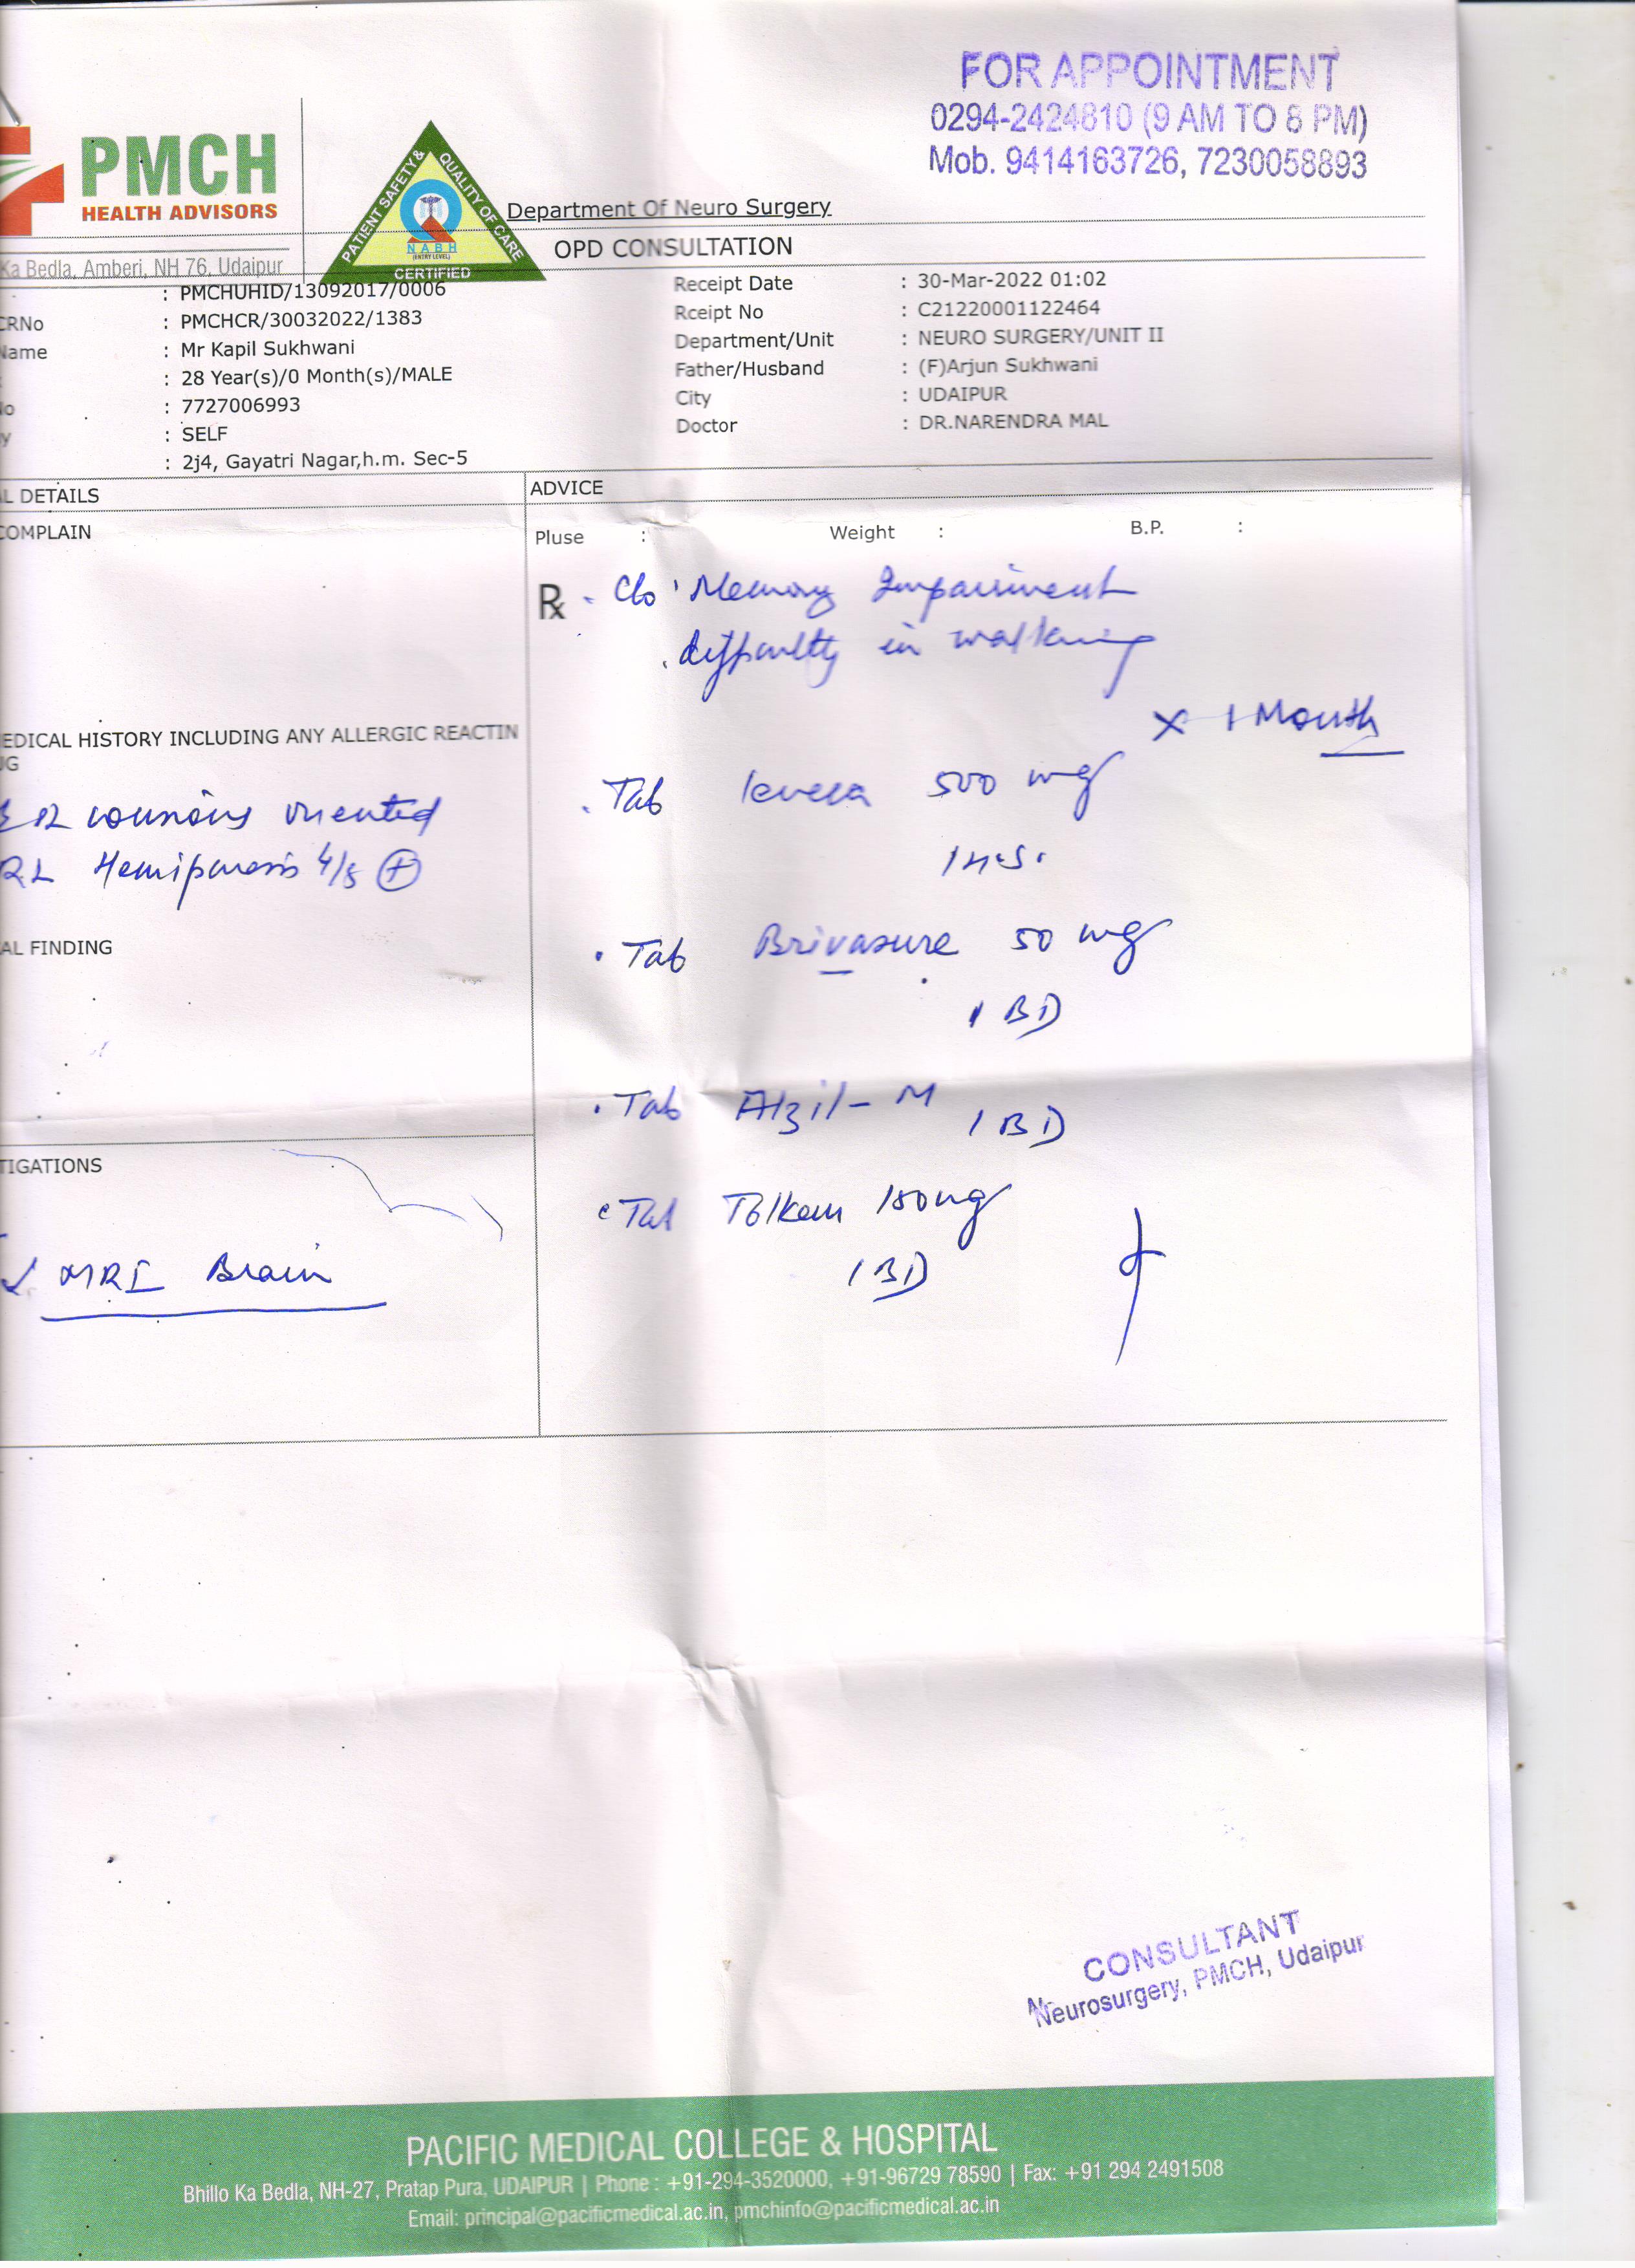 FOR APPOINTMENT
0294-2424810 (9 AM TO 8 PM)
Mob. 9414163726, 7230058893
PMCH
HEALTH ADVISORS
PATIENT SAFETY & QUALITY OF CARE
NABH
(ENTRY LEVEL)
CERTIFIED
Ka Bedla, Amberi, NH 76, Udaipur
Department Of Neuro Surgery
OPD CONSULTATION
: PMCHUHID/13092017/0006
Receipt Date : 30-Mar-2022 01:02
CRNo : PMCHCR/30032022/1383
Rceipt No : C21220001122464
Name : Mr Kapil Sukhwani
Department/Unit : NEURO SURGERY/UNIT II
: 28 Year(s)/0 Month(s)/MALE
Father/Husband : (F)Arjun Sukhwani
: 7727006993
City : UDAIPUR
: SELF
Doctor : DR.NARENDRA MAL
: 2j4, Gayatri Nagar,h.m. Sec-5
L DETAILS
COMPLAIN
EDICAL HISTORY INCLUDING ANY ALLERGIC REACTIN
UG
conscious oriented
Hemiparesis 4/5 +
AL FINDING
TIGATIONS
MRI Brain
ADVICE
Pluse : Weight : B.P. :
Rx - C/o Memory Impairment
. difficulty in walking
x 1 Month
. Tab levera 500 mg
1 H.S.
. Tab Brivasure 50 mg
1 BD
. Tab Alzil-M 1 BD
Tab Tolkem 150mg
1 BD
CONSULTANT
Neurosurgery, PMCH, Udaipur
PACIFIC MEDICAL COLLEGE & HOSPITAL
Bhillo Ka Bedla, NH-27, Pratap Pura, UDAIPUR | Phone : +91-294-3520000, +91-96729 78590 | Fax: +91 294 2491508
Email: principal@pacificmedical.ac.in, pmchinfo@pacificmedical.ac.in